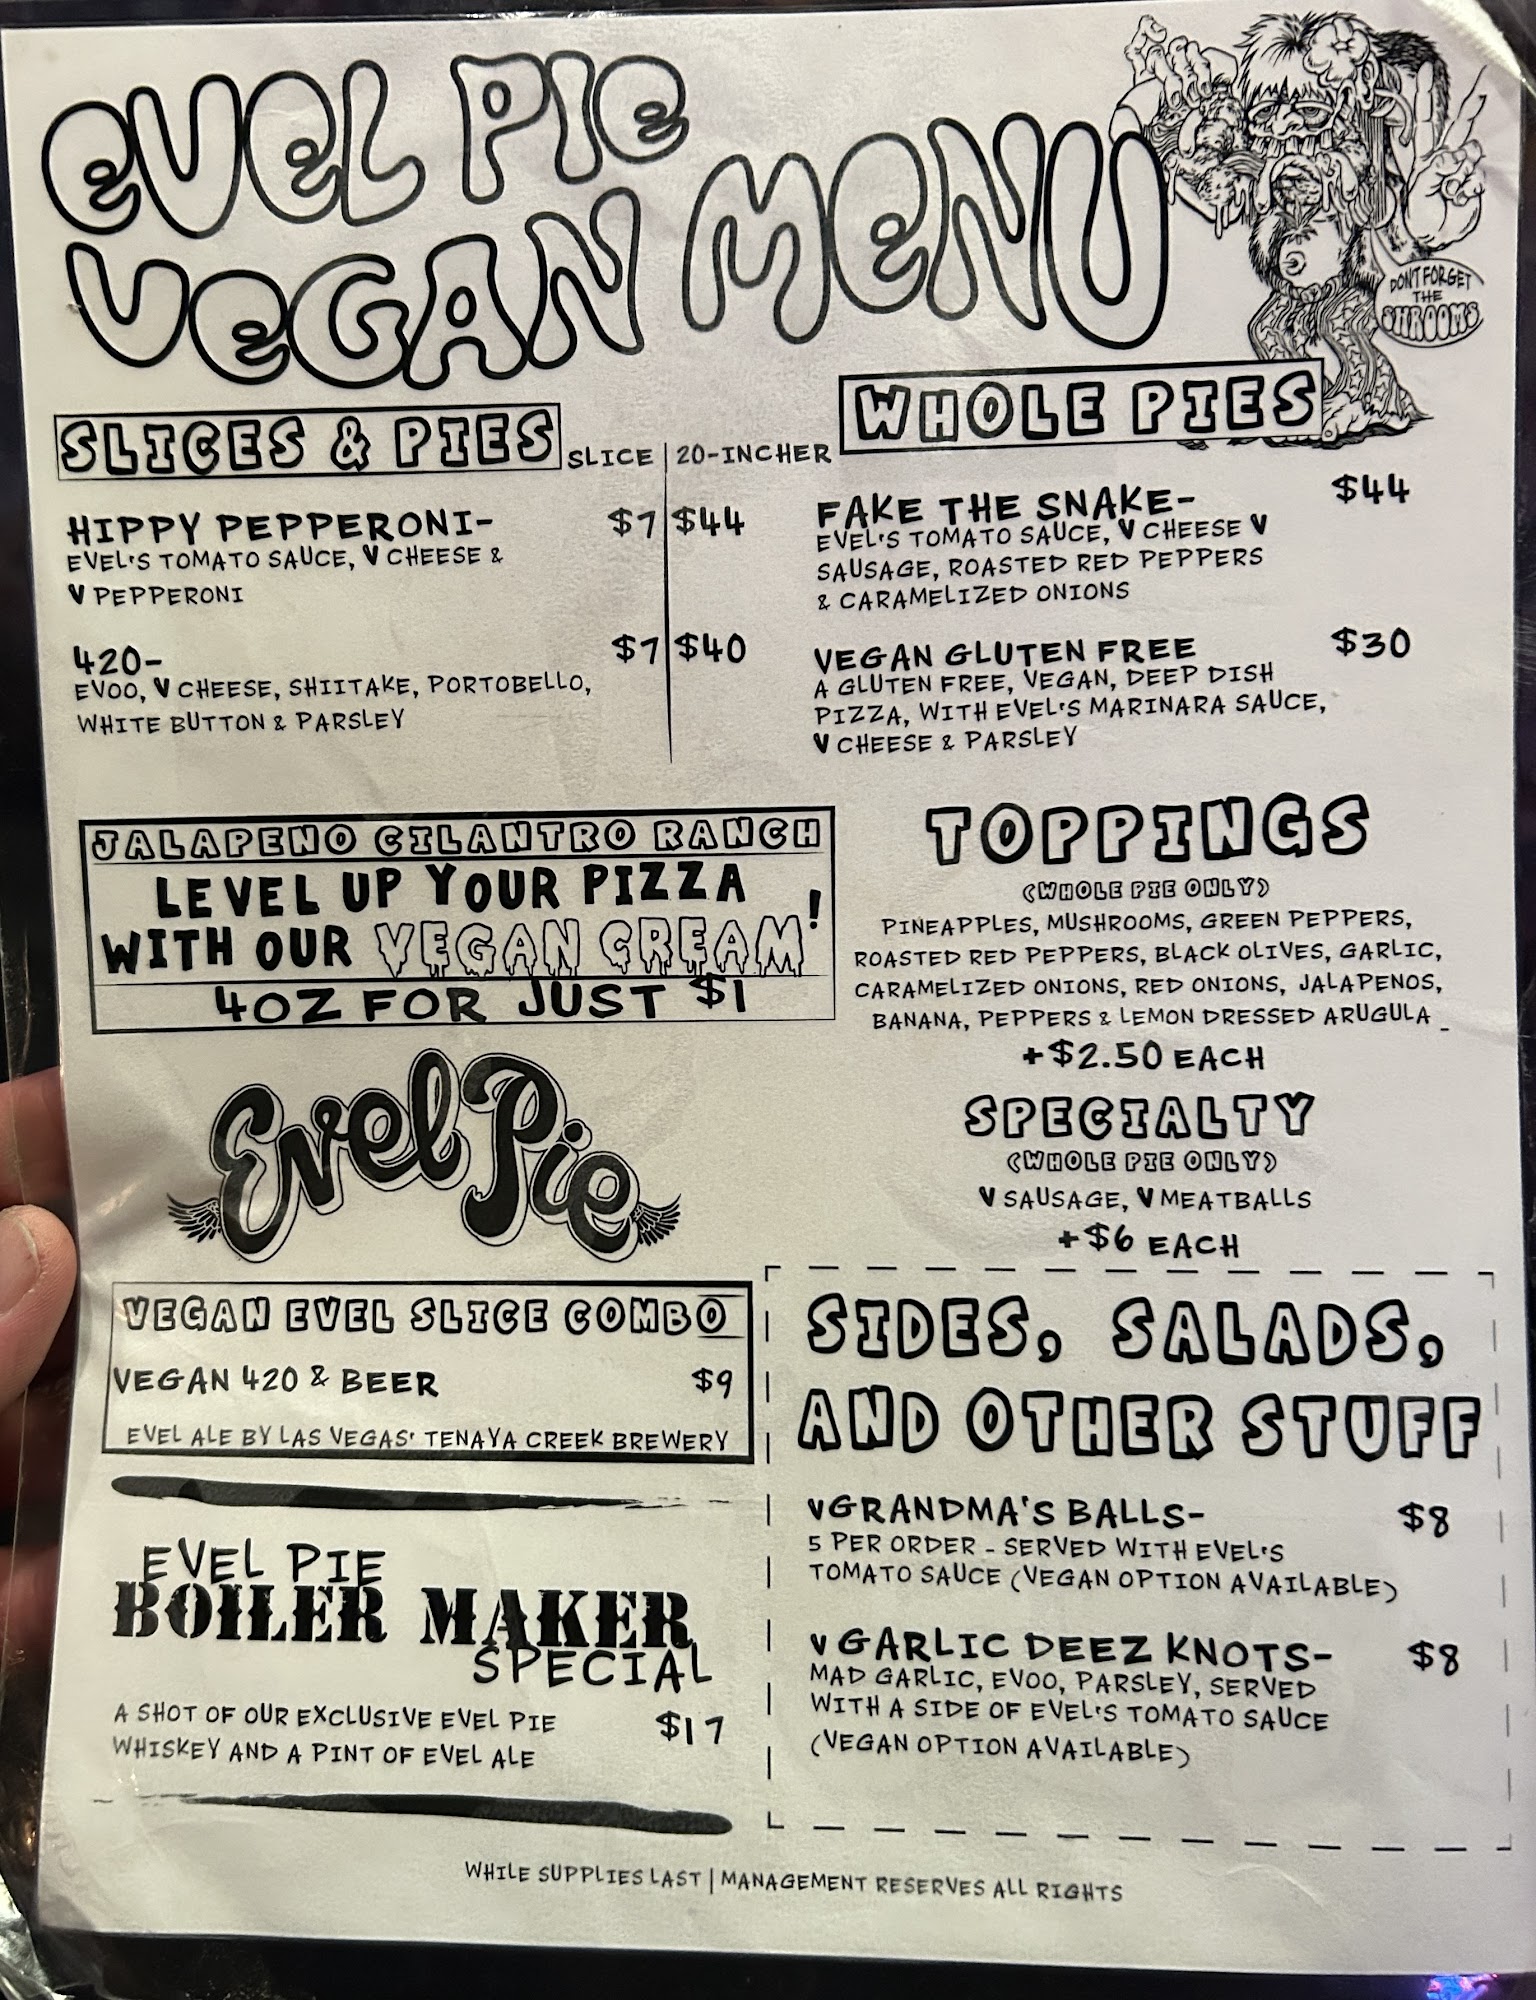 EVEL PIE
VEGAN MENU
DON'T FORGET
THE
SHROOMS
SLICES & PIES
SLICE | 20-INCHER
HIPPY PEPPERONI- $7 $44
EVEL'S TOMATO SAUCE, V CHEESE &
V PEPPERONI
420- $7 $40
EVOO, V CHEESE, SHIITAKE, PORTOBELLO,
WHITE BUTTON & PARSLEY
WHOLE PIES
FAKE THE SNAKE- $44
EVEL'S TOMATO SAUCE, V CHEESE V
SAUSAGE, ROASTED RED PEPPERS
& CARAMELIZED ONIONS
VEGAN GLUTEN FREE $30
A GLUTEN FREE, VEGAN, DEEP DISH
PIZZA, WITH EVEL'S MARINARA SAUCE,
V CHEESE & PARSLEY
JALAPENO CILANTRO RANCH
LEVEL UP YOUR PIZZA
WITH OUR VEGAN CREAM!
4OZ FOR JUST $1
TOPPINGS
(WHOLE PIE ONLY)
PINEAPPLES, MUSHROOMS, GREEN PEPPERS,
ROASTED RED PEPPERS, BLACK OLIVES, GARLIC,
CARAMELIZED ONIONS, RED ONIONS, JALAPENOS,
BANANA, PEPPERS & LEMON DRESSED ARUGULA _
+$2.50 EACH
SPECIALTY
(WHOLE PIE ONLY)
V SAUSAGE, V MEATBALLS
+$6 EACH
Evel Pie
VEGAN EVEL SLICE COMBO
VEGAN 420 & BEER $9
EVEL ALE BY LAS VEGAS' TENAYA CREEK BREWERY
EVEL PIE
BOILER MAKER
SPECIAL
A SHOT OF OUR EXCLUSIVE EVEL PIE $17
WHISKEY AND A PINT OF EVEL ALE
SIDES, SALADS,
AND OTHER STUFF
V GRANDMA'S BALLS- $8
5 PER ORDER - SERVED WITH EVEL'S
TOMATO SAUCE (VEGAN OPTION AVAILABLE)
V GARLIC DEEZ KNOTS- $8
MAD GARLIC, EVOO, PARSLEY, SERVED
WITH A SIDE OF EVEL'S TOMATO SAUCE
(VEGAN OPTION AVAILABLE)
WHILE SUPPLIES LAST | MANAGEMENT RESERVES ALL RIGHTS